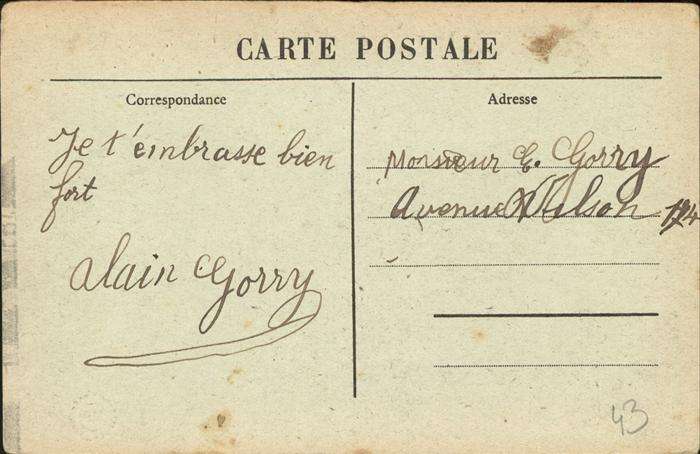 CARTE POSTALE
Correspondance
Je t'embrasse bien
fort
Alain Gorry
Adresse
Monsieur E. Gorry
Avenue Wilson
43